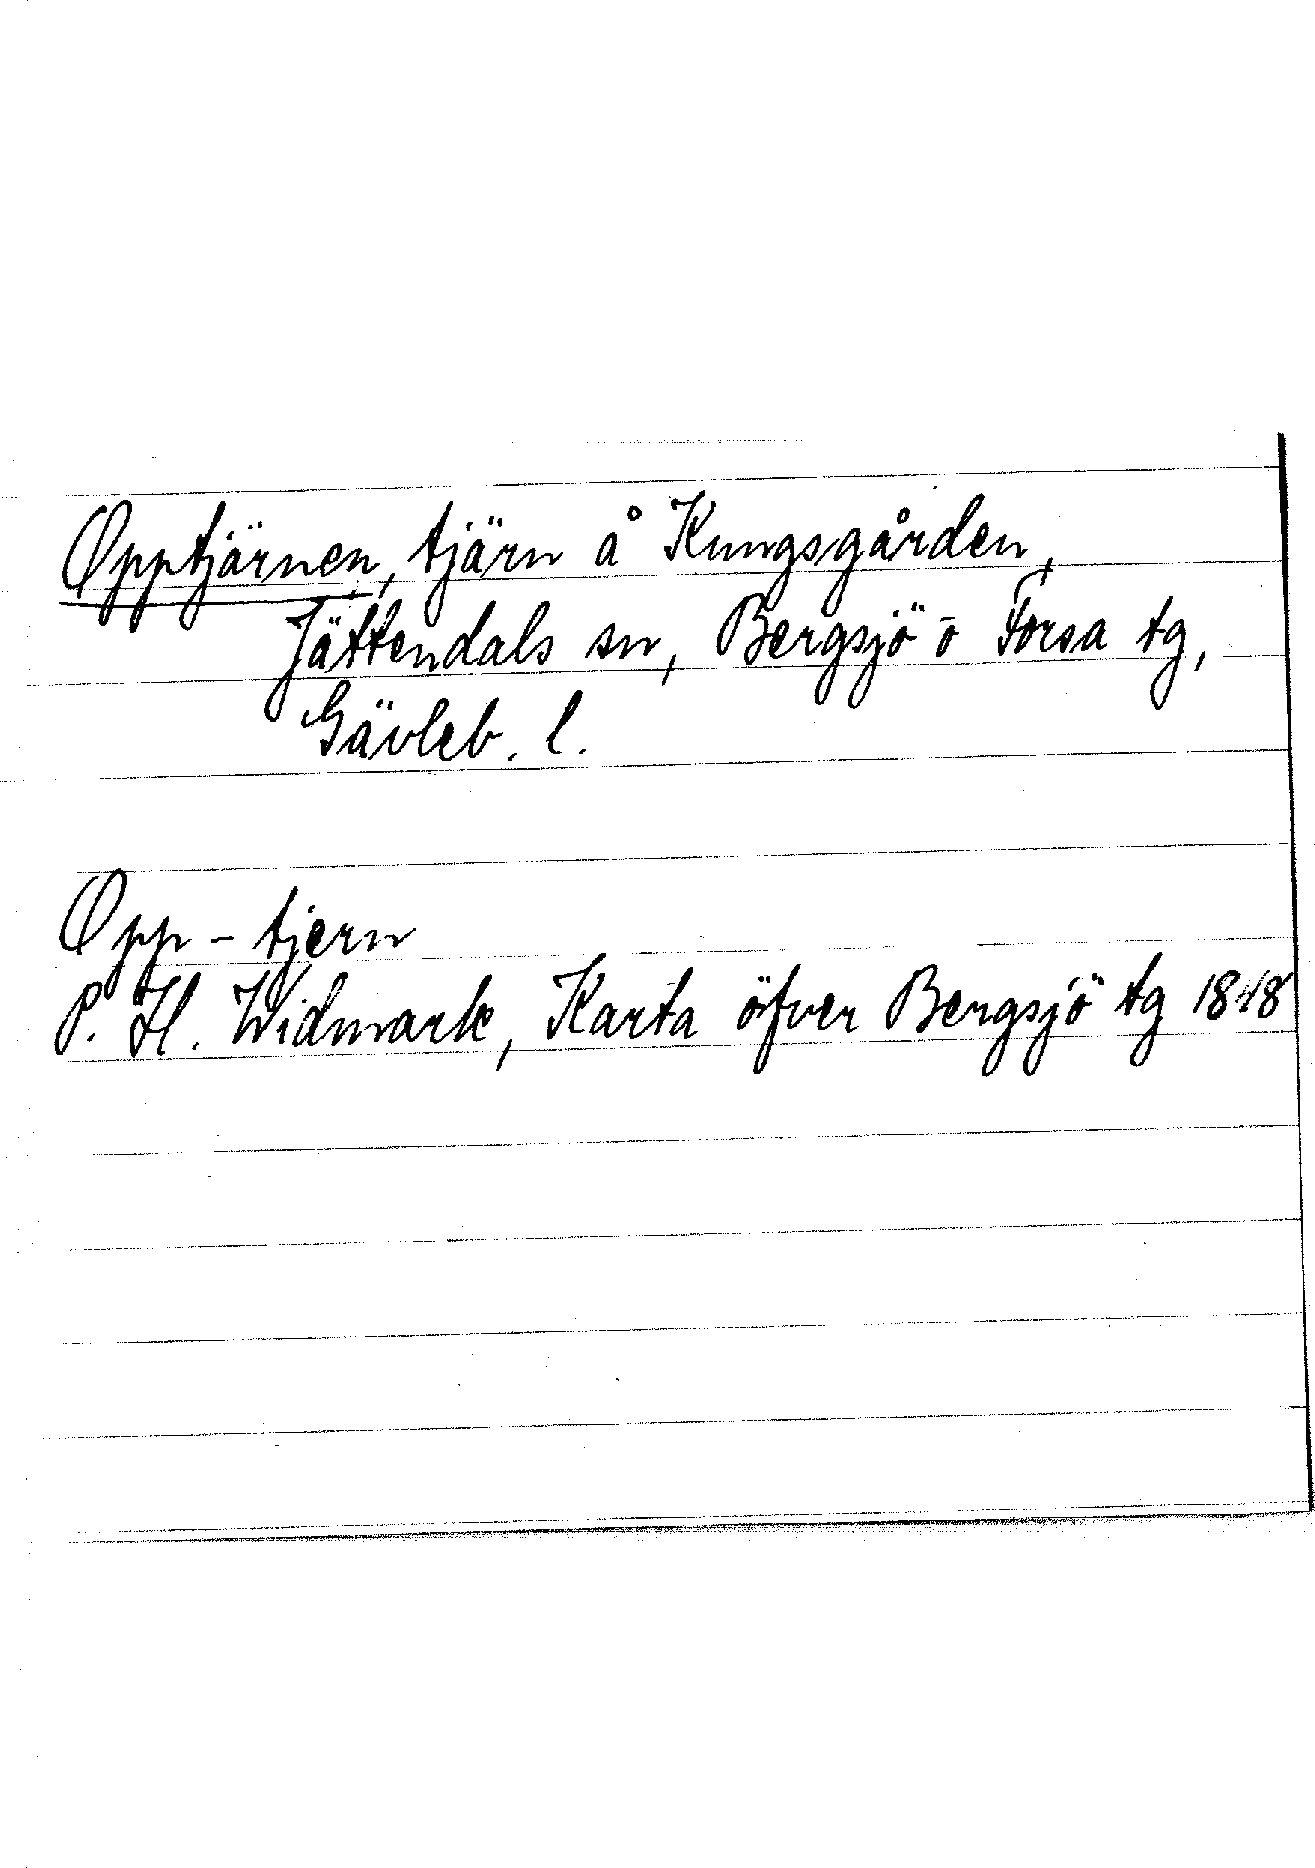 Opptjärnen, tjärn å Kungsgården,
Jättendals sn, Bergsjö o Forsa tg,
Gävleb. l.
Opp-tjern
P. H. Widmark, Karta öfver Bergsjö tg 1848